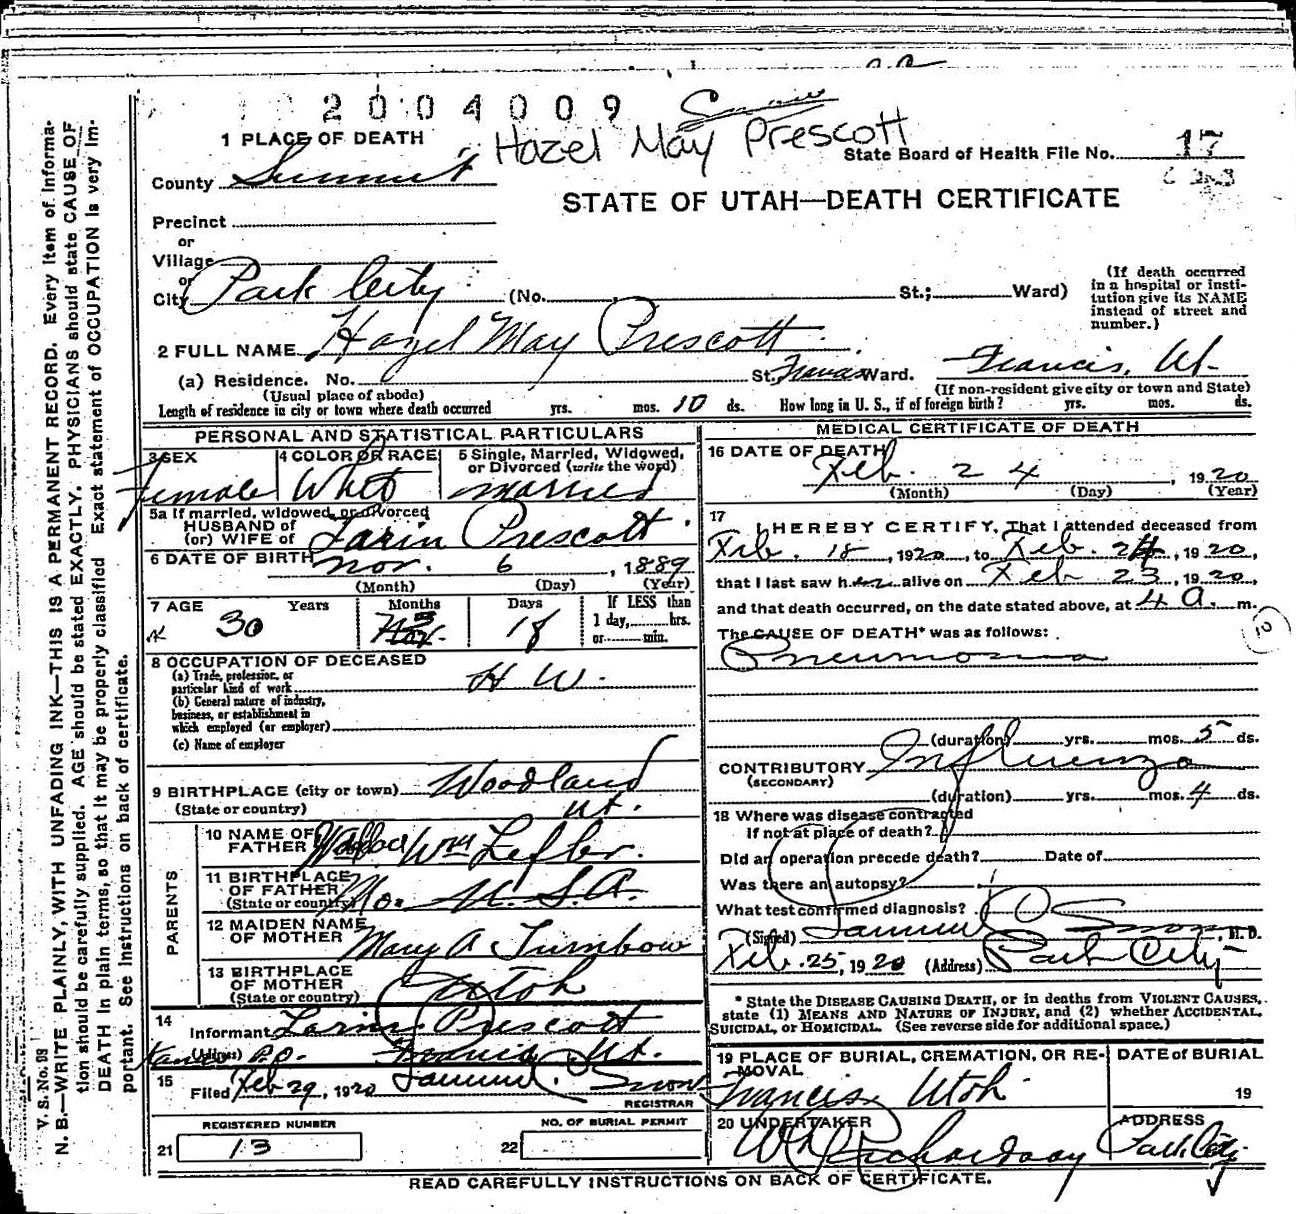 2004009
Snow
Hazel May Prescott
1 PLACE OF DEATH
State Board of Health File No. 17
County Summit
STATE OF UTAH—DEATH CERTIFICATE
Precinct
or
Village
or
City Park City (No. St.; Ward)
(If death occurred in a hospital or insti-
tution give its NAME
instead of street and
number.)
2 FULL NAME Hazel May Prescott
(a) Residence. No. St. Francis Ward. Francis, Ut.
(Usual place of abode) (If non-resident give city or town and State)
Length of residence in city or town where death occurred yrs. mos. 10 ds. How long in U. S., if of foreign birth? yrs. mos. ds.
PERSONAL AND STATISTICAL PARTICULARS
3 SEX
Female
4 COLOR OR RACE
Whit
5 Single, Married, Widowed,
or Divorced (write the word)
married
5a If married, widowed, or divorced
HUSBAND of
(or) WIFE of Larin Prescott
6 DATE OF BIRTH Nov. 6, 1889
(Month) (Day) (Year)
7 AGE Years Months Days If LESS than
30 3 18 1 day, hrs.
or min.
8 OCCUPATION OF DECEASED
(a) Trade, profession, or
particular kind of work H W.
(b) General nature of industry,
business, or establishment in
which employed (or employer)
(c) Name of employer
9 BIRTHPLACE (city or town) Woodland
(State or country) Ut.
PARENTS
10 NAME OF
FATHER Wm Lefler.
11 BIRTHPLACE
OF FATHER
(State or country) Mo. U.S.A.
12 MAIDEN NAME
OF MOTHER Mary A Turnbow
13 BIRTHPLACE
OF MOTHER
(State or country) Utah
14
Informant Larin Prescott
(Address) Francis Ut.
15
Filed Feb 29, 1920 Samuel Snow
REGISTRAR
REGISTERED NUMBER
21 13
NO. OF BURIAL PERMIT
22
MEDICAL CERTIFICATE OF DEATH
16 DATE OF DEATH
Feb. 24, 1920
(Month) (Day) (Year)
17
I HEREBY CERTIFY, That I attended deceased from
Feb. 18, 1920, to Feb. 24, 1920,
that I last saw her alive on Feb 23, 1920,
and that death occurred, on the date stated above, at 4 A. m.
The CAUSE OF DEATH* was as follows:
10
Pneumonia
(duration) yrs. mos. 5 ds.
CONTRIBUTORY Influenza
(SECONDARY)
(duration) yrs. mos. 4 ds.
18 Where was disease contracted
If not at place of death?
Did an operation precede death? Date of
Was there an autopsy?
What test confirmed diagnosis?
(Signed) Samuel Snow, M. D.
Feb. 25, 1920 (Address) Park City
* State the DISEASE CAUSING DEATH, or in deaths from VIOLENT CAUSES,
state (1) MEANS AND NATURE OF INJURY, and (2) whether ACCIDENTAL,
SUICIDAL, or HOMICIDAL. (See reverse side for additional space.)
19 PLACE OF BURIAL, CREMATION, OR RE-
MOVAL
Francis, Utah
DATE of BURIAL
19
20 UNDERTAKER
Wm Richardson
ADDRESS
Park City
READ CAREFULLY INSTRUCTIONS ON BACK OF CERTIFICATE.
V. S. No. 98
N. B.—WRITE PLAINLY, WITH UNFADING INK—THIS IS A PERMANENT RECORD. Every item of Informa-
tion should be carefully supplied. AGE should be stated EXACTLY. PHYSICIANS should state CAUSE OF
DEATH in plain terms, so that it may be properly classified Exact statement of OCCUPATION is very im-
portant. See instructions on back of certificate.